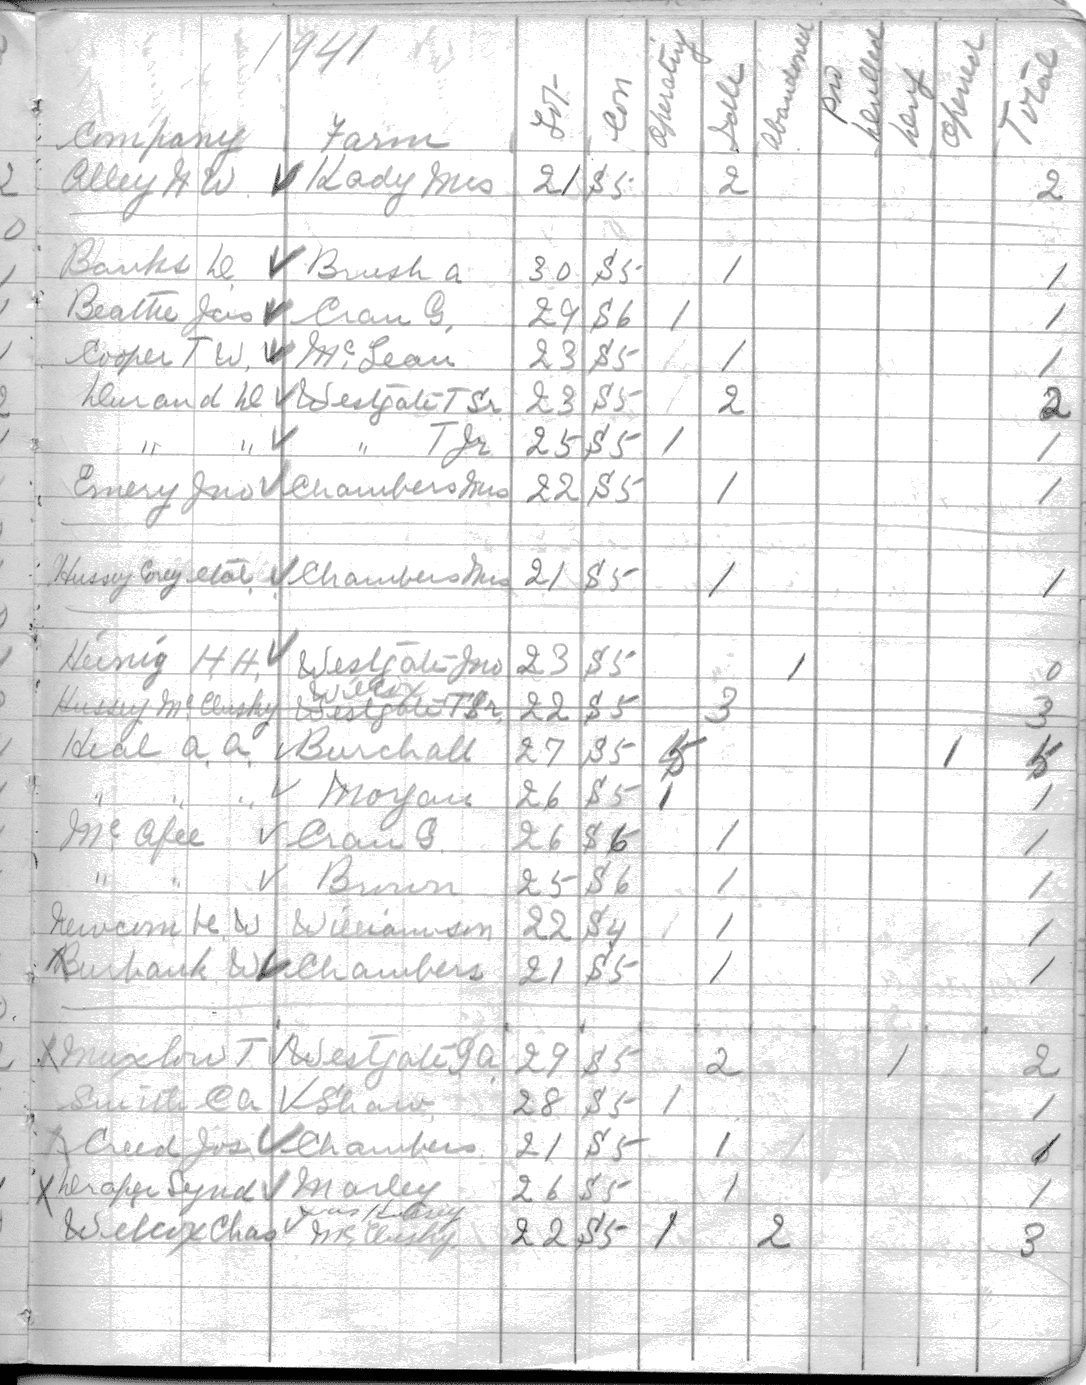 1941
Company Farm Lot Con Operating Idle Abandoned Pro Drilled Dry Opened Total
2 Alley H W. ✓ Kady Mrs 21 S5 2 2
0
1 Banks D. ✓ Brush A 30 S5 1 1
1 Beattie Jas ✓ Cran G. 29 S6 1 1
1 Cooper T W. ✓ McLean 23 S5 1 1
2 Durand D. ✓ Westgate T Sr 23 S5 2 2
1 " " ✓ " T Jr 25 S5 1 1
Emery Jno ✓ Chambers Mrs 22 S5 1 1
Hussey Corey ✓ Chambers Mrs 21 S5 1 1
Heinig H.H. ✓ Westgate Jno 23 S5 1 0
Wilcox
Hussey McClusky Westgate T Sr 22 S5 3 3
Heal A. A. ✓ Burchall 27 S5 5 1 5
" " " ✓ Moyan 26 S5 1 1
Mc Afee ✓ Cran G. 26 S6 1 1
" " ✓ Brown 25 S6 1 1
Newcomb W Williamson 22 S4 1 1
X Burbank W ✓ Chambers 21 S5 1 1
X Muxlow T ✓ Westgate G A 29 S5 2 1 2
Smith C A ✓ Shaw 28 S5 1 1
X Creed Jos. ✓ Chambers 21 S5 1 1
X Draper Synd ✓ Marley 26 S5 1 1
was Hussey
Wilcox Chas ✓ McClusky 22 S5 1 2 3